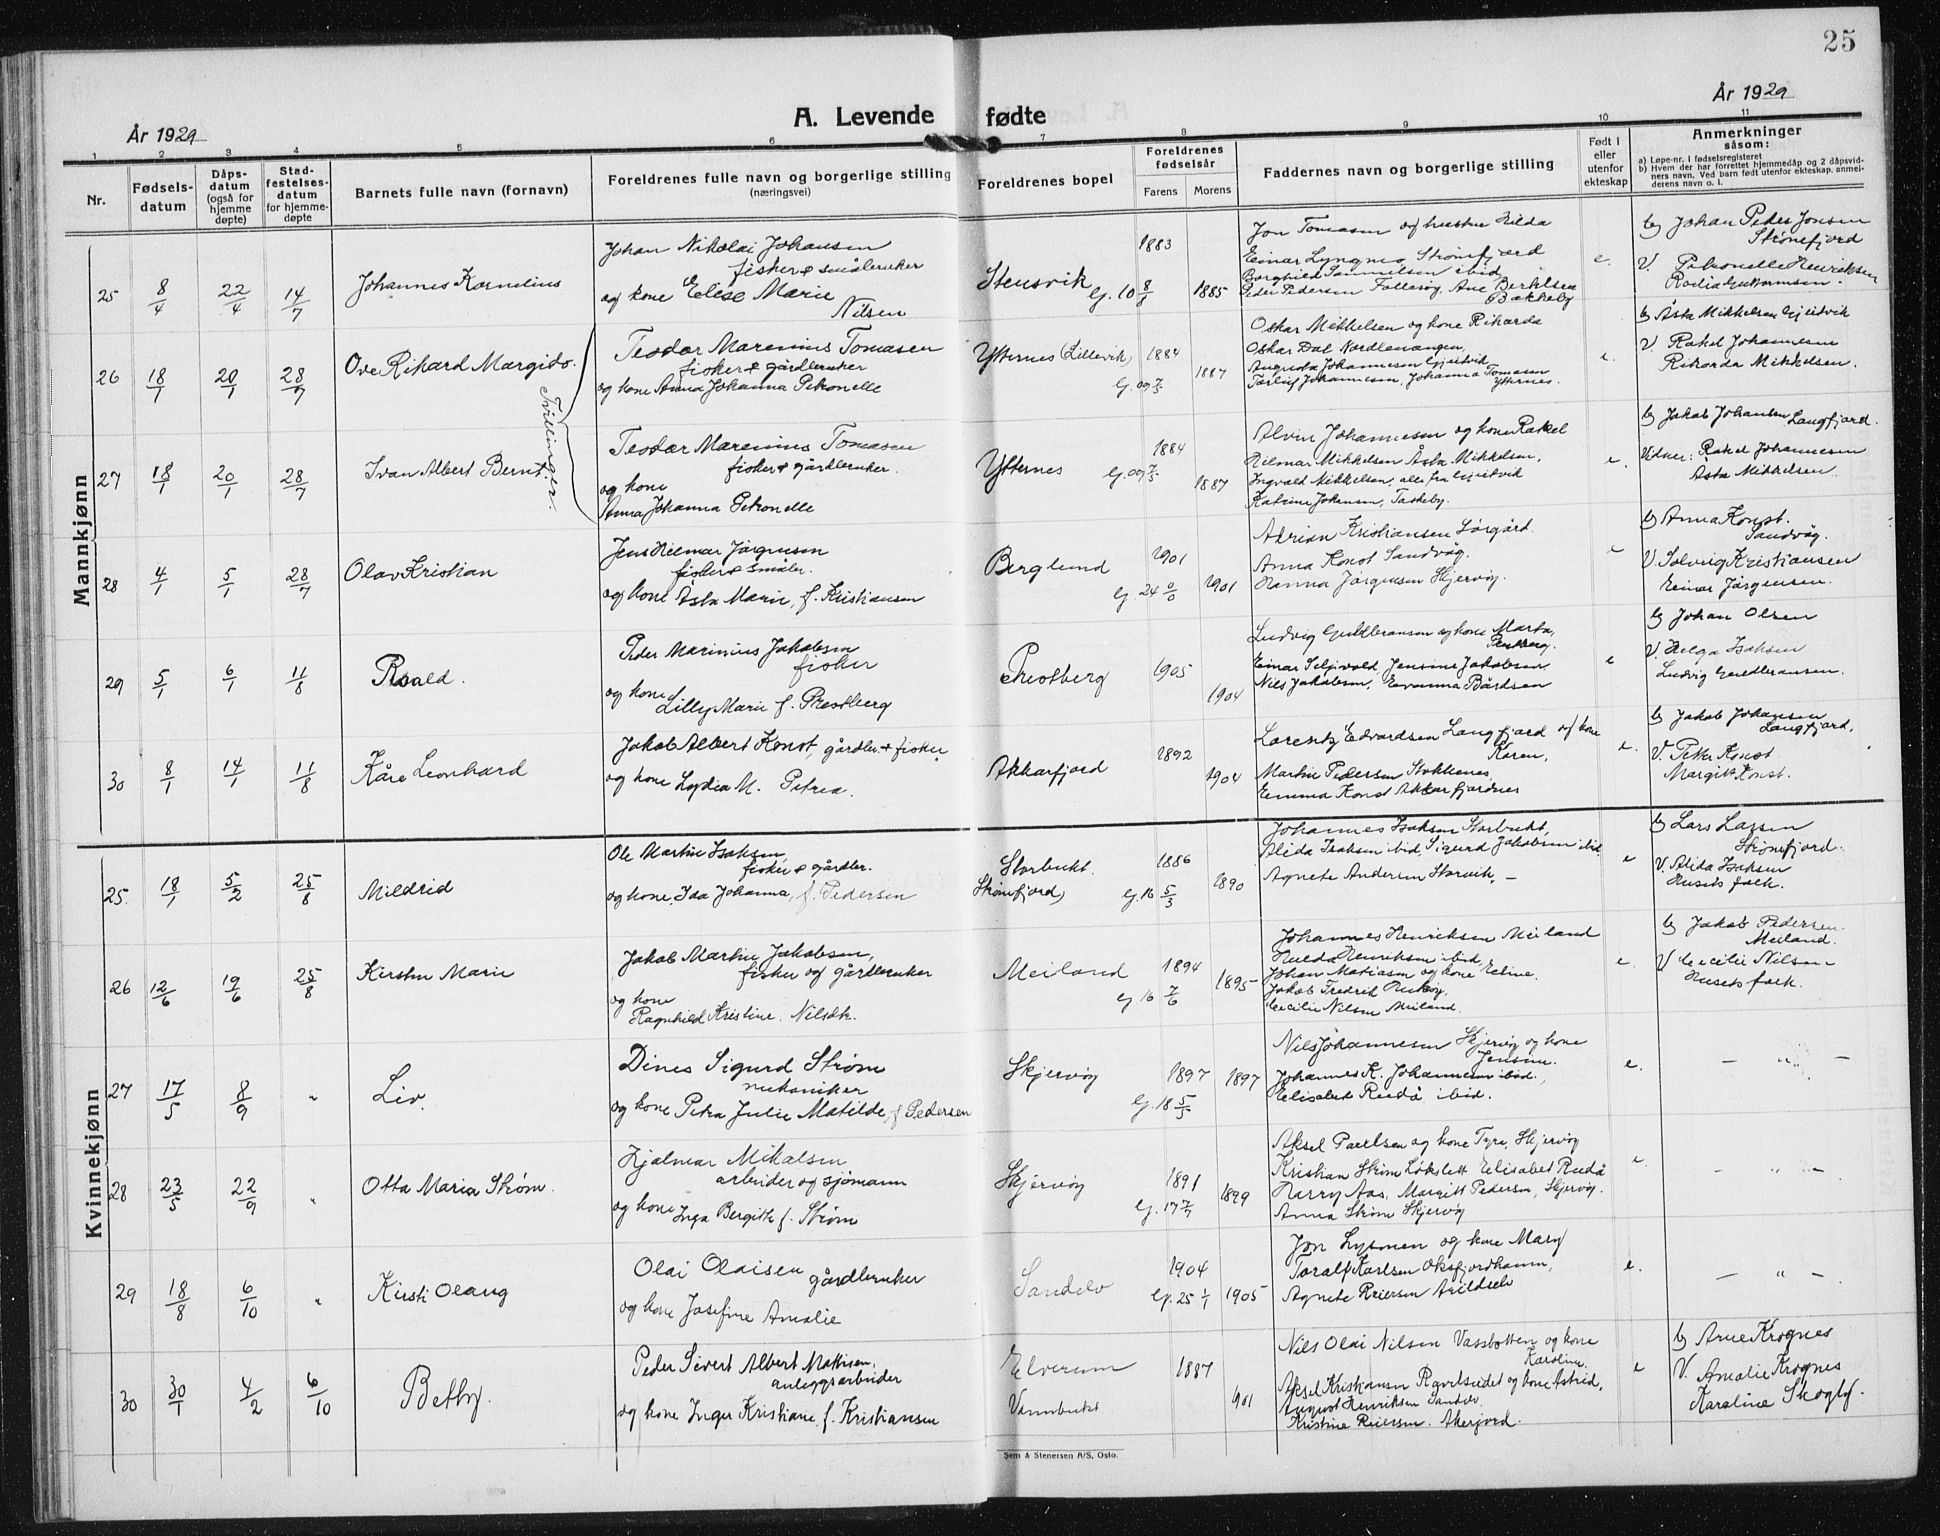 25
År 1929
A. Levende fødte
År 1929
1 2 3 4 5 6 7 8 9 10 11
Nr.
Fødsels-
datum
Dåps-
datum
(også for
hjemme
døpte)
Stad-
festelses-
datum
for hjemme-
døpte
Barnets fulle navn (fornavn)
Foreldrenes fulle navn og borgerlige stilling
(næringsvei)
Foreldrenes bopel
Foreldrenes
fødselsår
Farens Morens
Faddernes navn og borgerlige stilling
Født i
eller
utenfor
ekteskap
Anmerkninger
såsom:
a) Løpe-nr. i fødselsregisteret
b) Hvem der har forrettet hjemmedåp og 2 dåpsvid-
ners navn. Ved barn født utenfor ekteskap. anmel-
derens navn o. l.
Mannkjønn
25 8/4 22/4 14/7 Johannes Kornelius
Johan Nikolai Johansen
fisker & småbruker
og kone Elise Marie
Nilsen
Stensvik
1883
G. 10 8/8 1885
Jon Tomasen og hustru Hilda
Einar Lyngmo, Strømfjord
Borghild Samuelsen ibid
Peder Pedersen Follesøy, Ane Berthilsen
Bakkeby
e.
b) Johan Peder Jonsen
Strømfjord
V. Petronelle Henriksen
26 18/1 20/1 28/7 Ove Rikard Margido.
Tvillinger.
Teodor Marenius Tomasen
fisker & gårdbruker
og kone Anna Johanna Petronelle
Ytternes (Lillevik) 1884
G. 09 7/3 1887
Oskar Mikkelsen og kone Rikarda
Oskar Dal Nordlenangen,
Augusta Johannesen Gjeitvik
Johannesen, Johanna Tomasen
Ytternes.
e.
b) Åsta Mikkelsen Gjeitvik
V Rakel Johannesen
Rikarda Mikkelsen.
27 18/1 20/1 28/7 Ivan Albert Bernt.
Teodor Marenius Tomasen
fisker & gårdbruker.
og kone
Anna Johanna Petronelle
Ytternes
1884
G. 09 7/3 1887
Alvin Johannesen og kone Rakel
Hilmar Mikkelsen, Åsta Mikkelsen,
Ingvald Mikkelsen, alle fra Gjeitvik
Katrine Johansen, Taskeby.
e.
b) Jakob Johansen Langfjord.
Vidner: Rakel Johannesen
Åsta Mikkelsen
28 4/1 5/1 28/7 Olav Kristian
Jens Hilmar Jørgensen
fisker & småbr.
og kone Åsta Marie, f. Kristiansen
Berglund
1901
G. 24 0/0 1901
Adrian Kristiansen Sørgård.
Anna Konst Sandvåg.
Hanna Jørgensen Skjervøy.
e
b) Anna Konst.
Sandvåg.
V. Solveig Kristiansen
Einar Jørgensen.
29 5/1 6/1 11/8 Roald.
Peder Marinius Jakobsen
fisker
og kone
Lilly Marie f. Prestberg
Prestberg
1905
1904
Ludvig Guldbransen og kone Marta,
Prestberg.
Einar Seljevold, Jensine Jakobsen
Nils Jakobsen, Evanna Bårdsen
e
b) Johan Olsen
V. Helga Isaksen
Ludvig Guldbransen.
30 8/1 14/1 11/8 Kåre Leonhard
Jakob Albert Konst, gårdbr. + fisker
og kone Lydia M. Petrea.
Akkarfjord
1892
1904
Lorentz Edvardsen Langfjord og kone
Karen,
Martin Pedersen Stokkenes,
Emma Konst Akkarfjordnes
e.
b) Jakob Johansen
Langfjord.
V. Petra Konst
Margit Konst.
Kvinnekjønn
25. 18/1 5/2 25/8 Mildrid
Ole Martin Isaksen,
fisker & gårdbr.
og kone, Ida Johanna, f. Pedersen
Storbukt.
Strømfjord)
1886
G. 16 5/3 1890
Johannes Isaksen Storbukt,
Alida Isaksen ibid, Sigurd Jakobsen ibid.
Agnete Andersen Storvik. –
e
b) Lars Larsen
Strømfjord.
V. Alida Isaksen
Husets folk.
26 12/6 19/6 25/8 Kirsten Marie
Jakob Martin Jakobsen,
fisker og gårdbruker
og kone
Ragnhild Kristine. Nilsdtr.
Meiland
1894
G 16 7/6 1895
Johannes Henriksen Meiland
Hulda Henriksen ibid,
Johan Matiasen og kone Eline.
Jakob Fredrik
Cecilie Nilsen Meiland.
e.
b) Jakob Pedersen.
Meiland.
V Cecilie Nilsen
Husets folk.
27 17/5 8/9 " Liv.
Dines Sigurd Strøm
mekaniker
og kone Petra Julie Matilde, f. Pedersen
Skjervøy
1897 1897
G. 18 5/5
Nils Johannesen Skjervøy og kone
Jensine.
Johannes K. Johannesen ibid.,
Elisabet Rudå ibid.
e.
– " –
28 23/5 22/9 " Otta Maria Strøm.
Hjalmar Mikalsen
arbeider og sjømann
og kone Inga Bergitte f. Strøm
Skjervøy
1891
G. 17 7/7 1899
Aksel Paulsen og kone Tyra, Skjervøy
Kristian Strøm Løkslett Elisabet Rudå
Harry Aas, Margitt Pedersen, Skjervøy.
Anna Strøm Skjervøy
e.
– " –
29 18/8 6/10 " Kirsti Olaug
Olai Olaisen
gårdbruker
og kone Josefine Amalie
Sandelv
1904
G. 25 1/1 1905
Jon Lysmen og kone Mary
Toralf Karlsen Oksfjordhamn,
Agnete Reiersen
e.
– " –
30 30/1 4/2 6/10 Betty.
Peder Sivert Albert Mattisen,
anleggsarbeider
og kone Inger Kristiane, f. Kristiansen
Elverum
Vannbukt
1887
1901
Nils Olai Nilsen Vassbotten og kone
Karoline.
Aksel Kristiansen Ravelseidet og kone Astrid,
August Henriksen Sandelv,
Kristine Reiersen. Akerjord.
e
b) Arne Krognes
V. Amalie Krognes
Karoline Skoglf.
Sem & Stenersen A/S, Oslo.